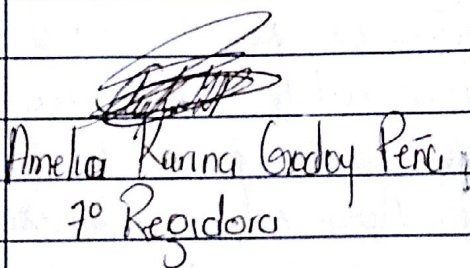 Amelia Karina Godoy Peña,
7º Regidora